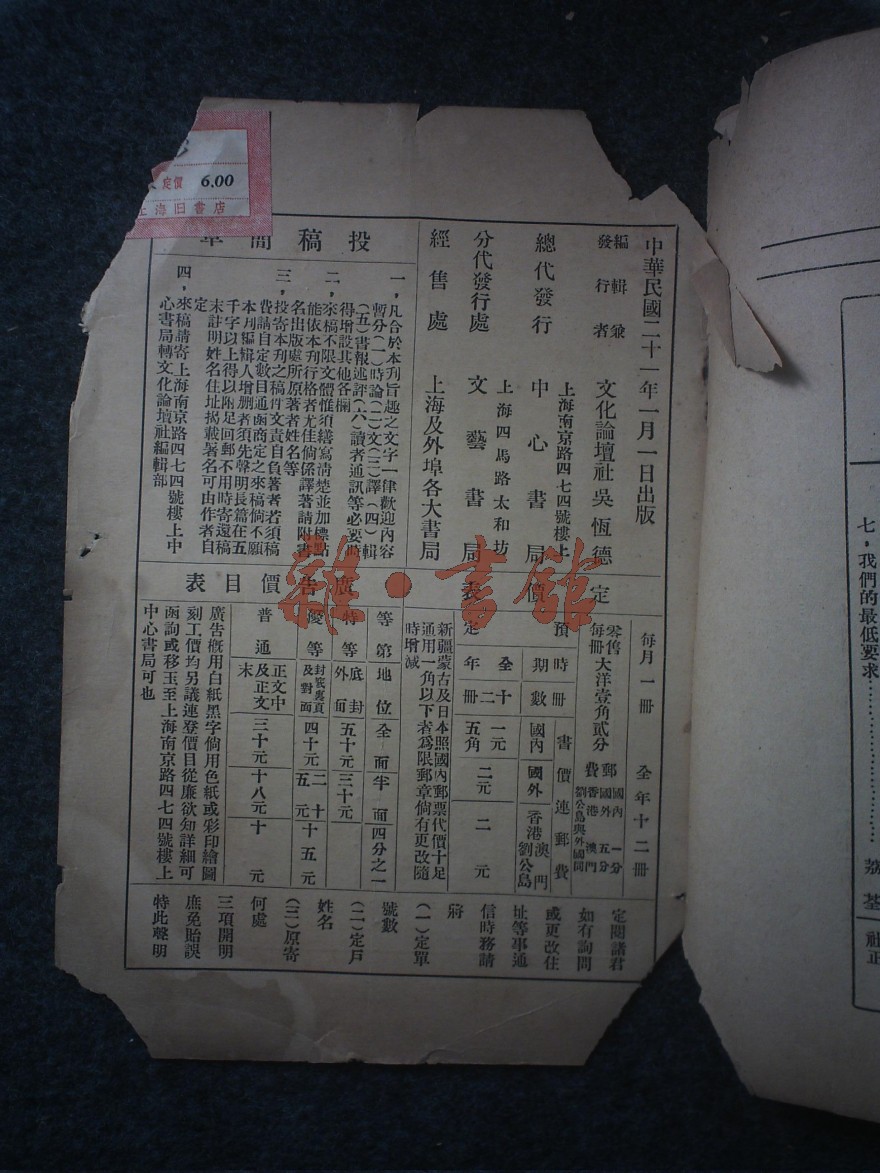 定價 6.00
上海旧書店
中華民國二十一年一月一日出版
編輯兼
發行者
文化論壇社吳恆德
上海南京路四七四號樓上
總代發行 中心書局
上海四馬路太和坊
分代發行處 文藝書局
經售處 上海及外埠各大書局
投稿簡章
一，凡合於本刊旨趣之文字一律歡迎內容
暫分（一）時論（二）文（三）譯（四）輯
（五）書報述評（六）讀者通訊等必要時
得增設其他各欄
二，來稿不限文體惟須繕寫清楚並加標點
能依本刊行格者尤佳倘係譯著請附書
名出版處所原著者姓名等
三，投寄本刊之稿件文責自負著者若須稿
費請自定數目通函商定之來稿倘不願
本刊編輯人增删者須先聲明長篇在五
千字以上得以附足回郵不用時寄還稿
末註明姓名住址揭載署名可由作者自
定
四，來稿請寄上海南京路四七四號樓上中
心書局轉文化論壇社編輯部
定價表
每月一冊 全年十二冊
零售每冊大洋壹角貳分
郵費
國內 一分
國外 五分
香港 澳門
劉公島與外國同
預定
時期 冊數 書價連郵費
國內 國外 香港澳門劉公島
全年 十二冊 一元五角 二元 二元
新疆蒙古及日本照國內郵票代價十足
通用一角以下者為限郵章倘有更改隨
時增減
廣告價目表
等第 地位 全面 半面 四分之一
特等 底封外面 五十元 三十元
優等 封裏裏頁及對面 四十元 二十五元 十五元
普通 正文中及正文末 三十元 十八元 十元
廣告概用白紙黑字倘用色紙或彩印繪圖
刻工價均另議連登價目從廉欲知詳細可
函詢或移玉至上海南京路四七四號樓上
中心書局可也
定閱諸君
如有詢問
或更改住
址等事通
信時務請
將
（一）定單
號數
（二）定戶
姓名
（三）原寄
何處
三項開明
庶免貽誤
特此聲明
七，我們的最低要求
荔荃
社正
雜·書館